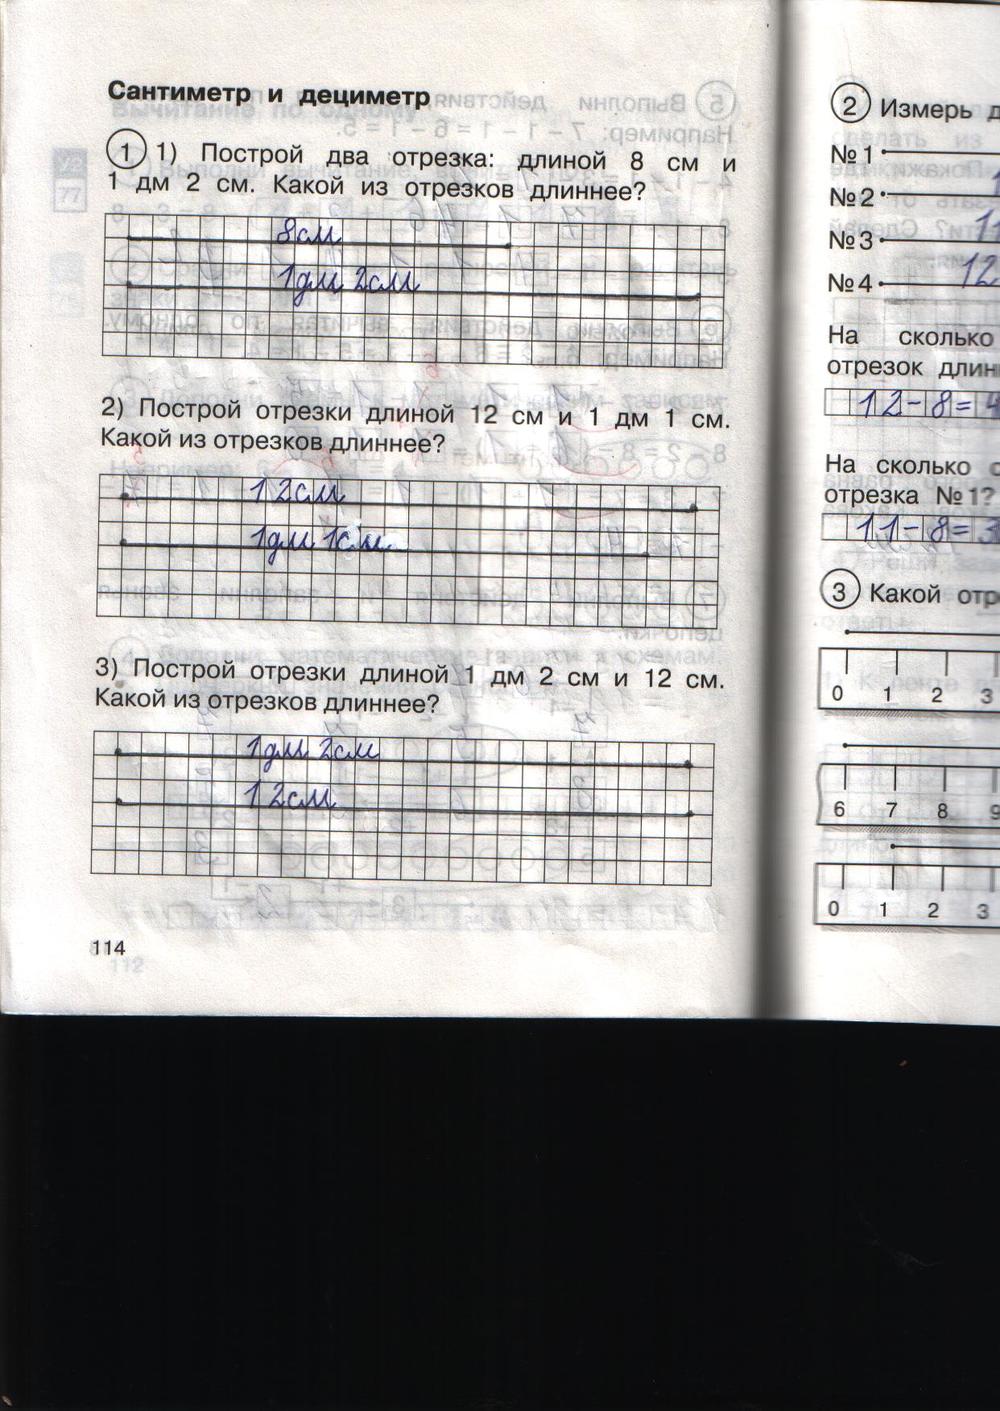 Сантиметр и дециметр
1 1) Построй два отрезка: длиной 8 см и
1 дм 2 см. Какой из отрезков длиннее?
8см
1дм 2см
2) Построй отрезки длиной 12 см и 1 дм 1 см.
Какой из отрезков длиннее?
12см
1дм 1см
3) Построй отрезки длиной 1 дм 2 см и 12 см.
Какой из отрезков длиннее?
1дм 2см
12см
114
112
УЗ
77
2 Измерь
№1
№2
№3 11
№4 12
На сколько
отрезок
12-8=
На сколько
отрезка №1?
11-8=
3 Какой
0 1 2 3
6 7 8 9
0 1 2 3